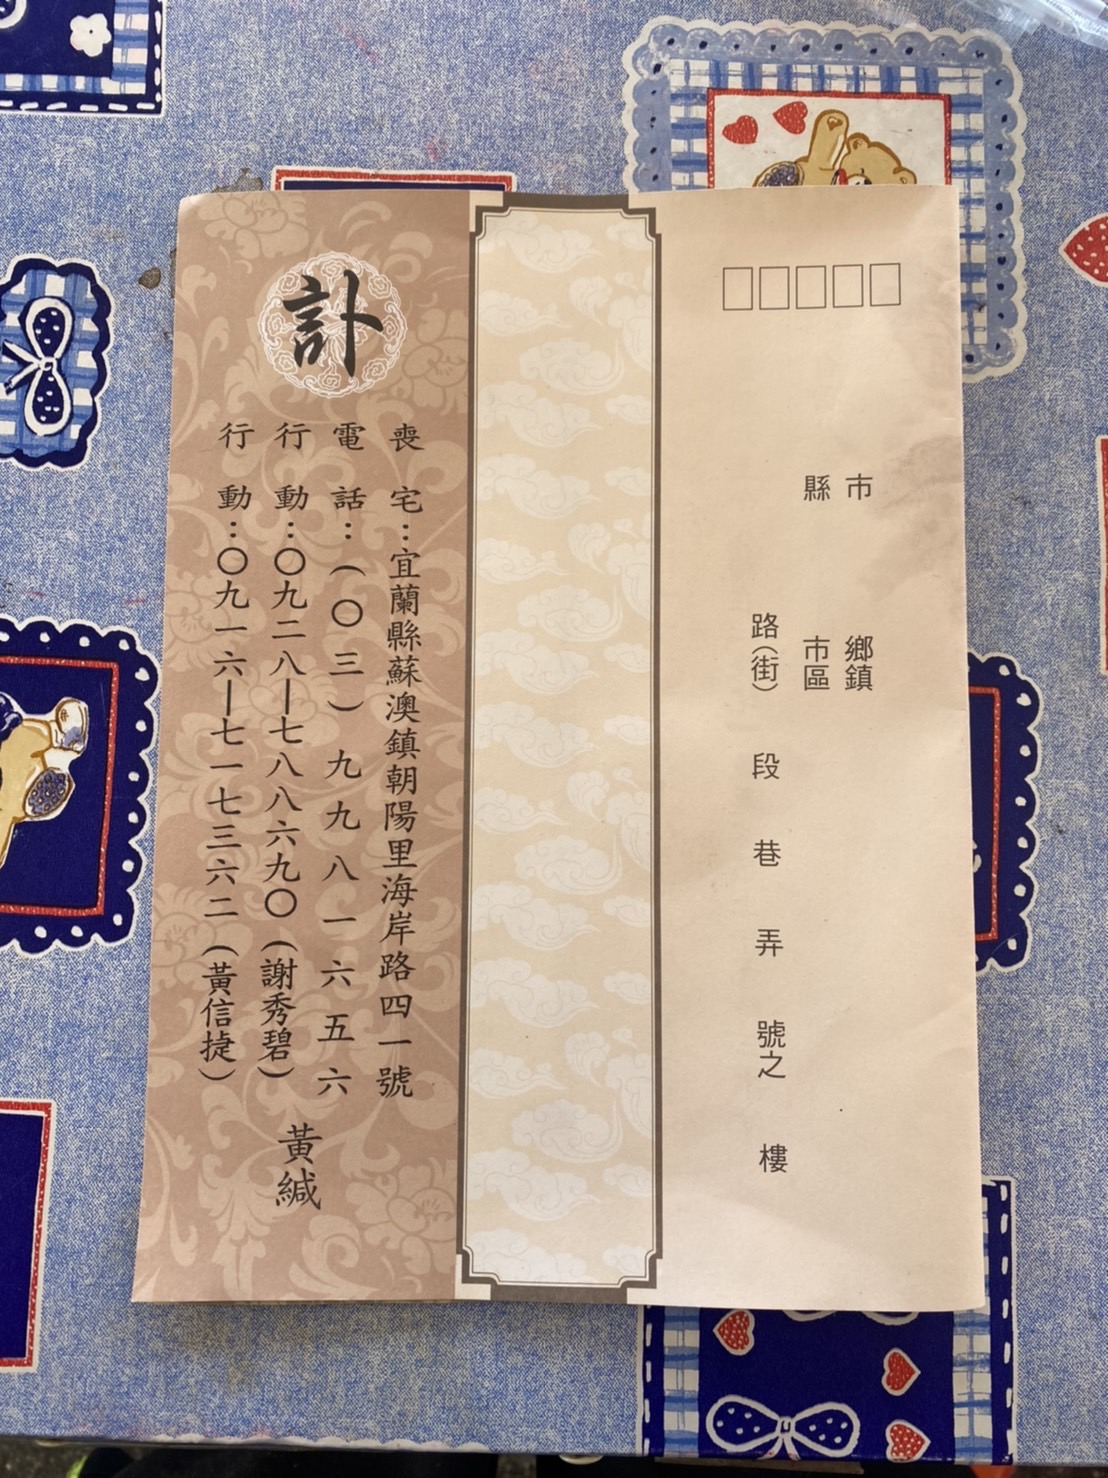 市
縣
鄉鎮
市區
路(街)　段　巷　弄　號之　樓
訃
喪宅：宜蘭縣蘇澳鎮朝陽里海岸路四一號
電話：(〇三)九九八一六五六
行動：〇九二八—七八八六九〇(謝秀碧)
行動：〇九一六—七一七三六二(黃信捷)
黃緘